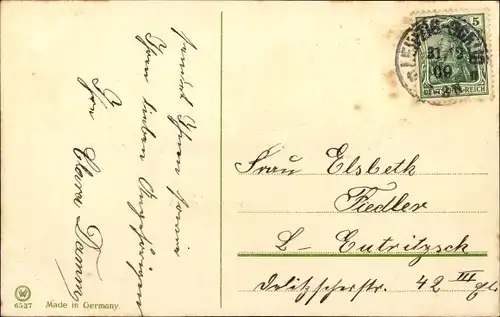 sendet Ihnen sowie
Ihren lieben Angehörigen
Ihre
Clara Damm
LEIPZIG
31.12
09
5
REICH
Frau Elsbeth
Fiedler
L- Eutritzsch
Delitzscherstr. 42 III
6527
Made in Germany